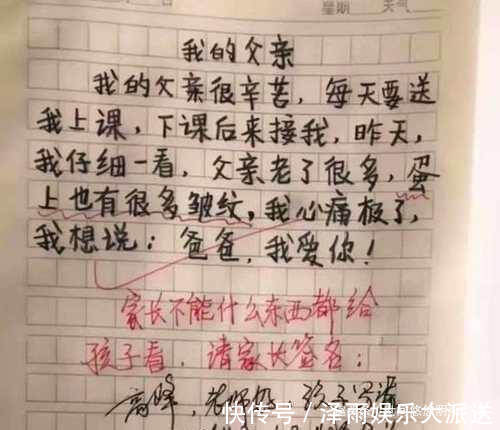 星期 天气
我的父亲
我的父亲很辛苦，每天要送
我上课，下课后来接我，昨天，
我仔细一看，父亲老了很多，蛋
上也有很多皱纹，我心痛极了，
我想说：爸爸，我爱你！
家长不能什么东西都给
孩子看，请家长签名：
高峰，老师好，孩子写错
快传号 / 泽雨娱乐大派送